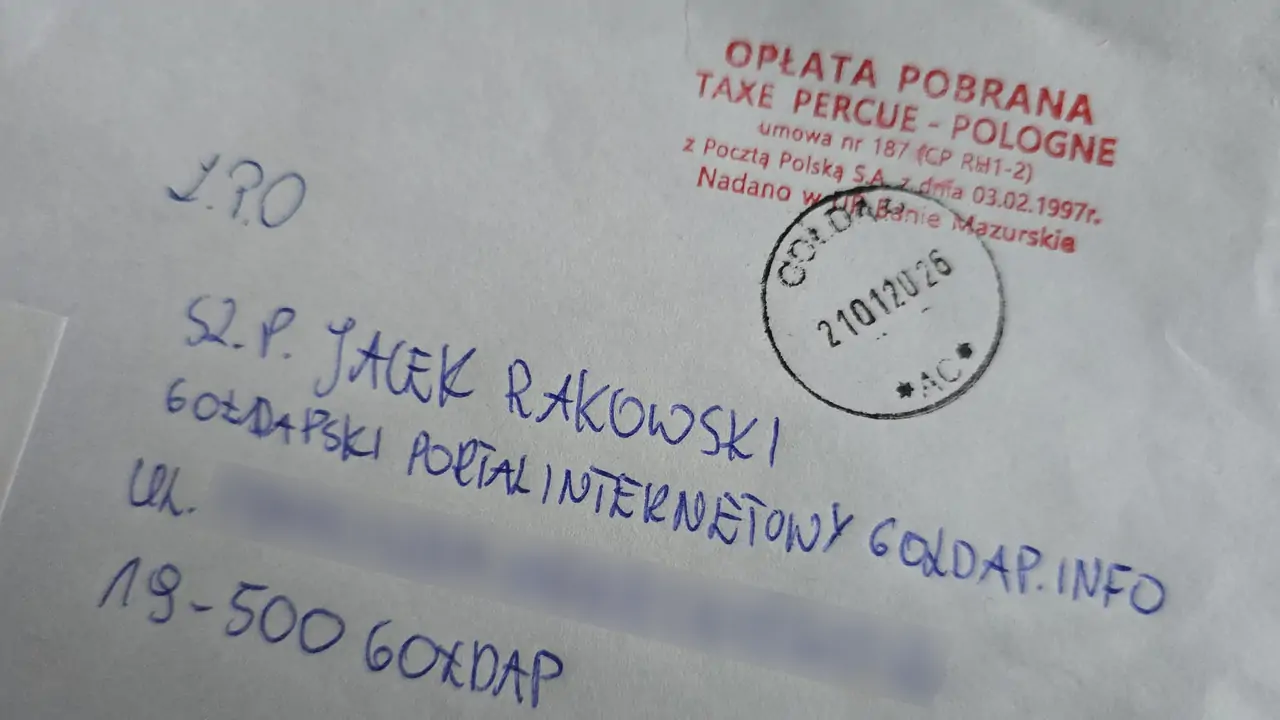 OPŁATA POBRANA
TAXE PERCUE - POLOGNE
umowa nr 187 (CP RH1-2)
z Pocztą Polską S.A. z dnia 03.02.1997r.
Nadano w UP Banie Mazurskie
GOŁDAP
21012026
*AC*
Z.P.O
SZ.P. JACEK RAKOWSKI
GOŁDAPSKI PORTAL INTERNETOWY GOŁDAP.INFO
UL.
19-500 GOŁDAP